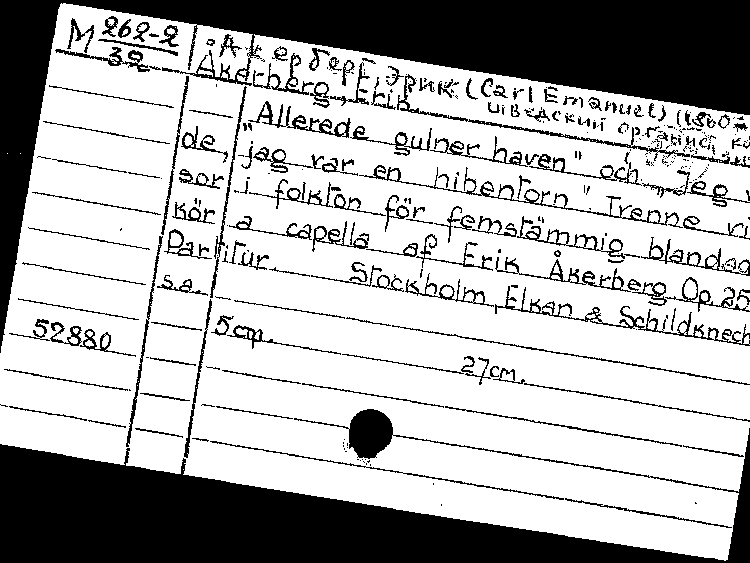 М 262-2
32
Åкерберг, Эрик (Carl Emanuel) (1860-
шведский органист,
Åkerberg, Erik.
„Allerede gulner haven" och „Jeg
de, jag var en hibentorn". Trenne vi
sor i folkton för femstämmig blandad
kör a capella af Erik Åkerberg. Op. 25
Partitur. Stockholm, Elkan & Schildknech
s.a.
52880 5 стр. 27 cm.